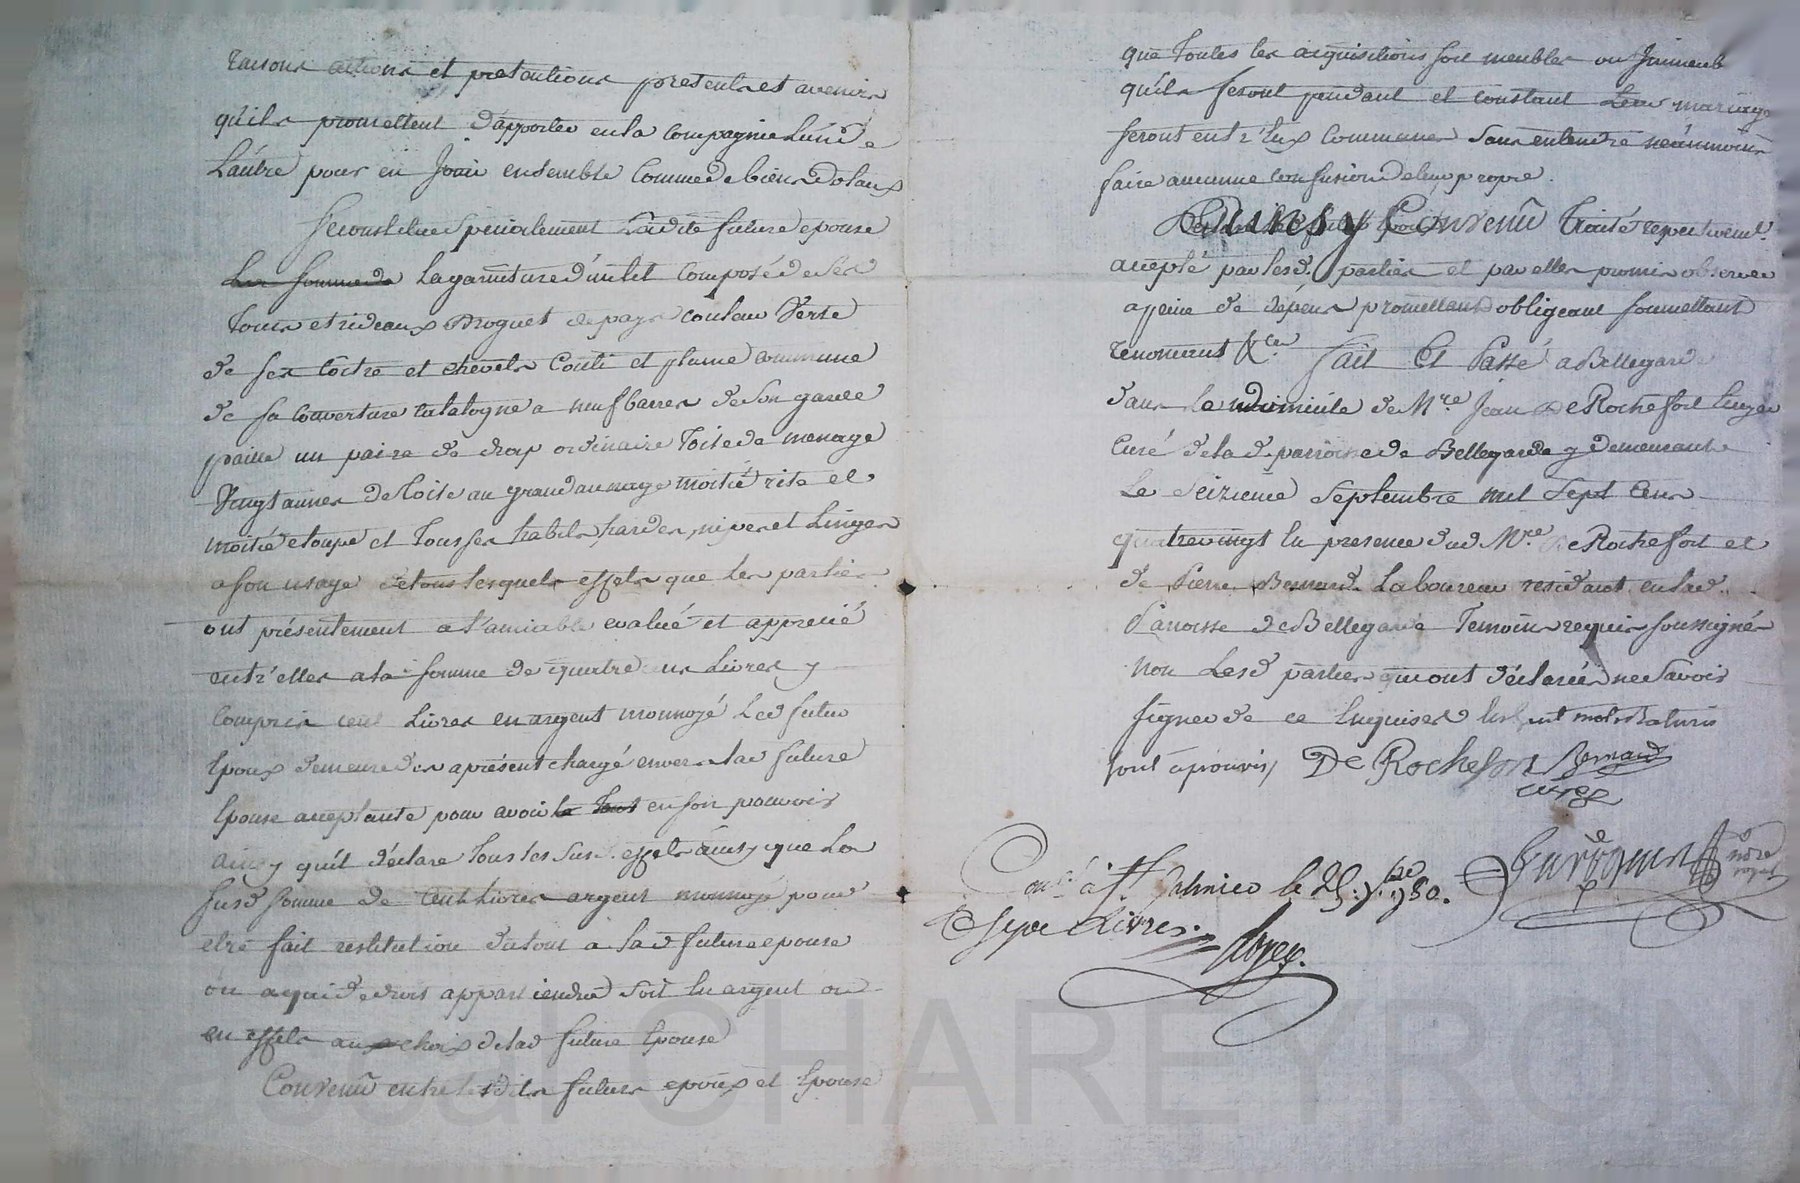 raisons actions et pretentions presents et avenir
qu'ils promettent d'apporter en la compagnie L'un de
L'autre pour en Jouir ensemble Comme de biens dotaux
Se constitue specialement Ladite future epouse
La somme de La garniture d'un lit composé de ses
Tours et rideaux Droguet de pays couleur Verte
de sa coitre et chevet Couti et plume commune
de sa couverture catalogne a neuf barres de son garde
paille un paire de drap ordinaire Toile de menage
Vingt aunes de toile au grand aunage moitié rite et
moitié etoupe et Tous ses habits, hardes, nipes et Linges
a son usage de tous lesquels effets que les parties
ont présentement a l'amiable evalué et apprecié
entr'elles a la somme de quatre cens Livres y
Compris cent Livres en argent monnoyé Led futur
Epoux demeure des a présent chargé envers lad future
Epouse acceptante pour avoir le Tout en son pouvoir
ainsy qu'il déclare Tous les susd. effets ainsy que La
susd somme de Cent Livres argent monnoyé pour
etre fait restitution du tout a lad future epouse
ou a qui de droit appartiendra soit En argent ou
en effets au choix de lad future Epouse
Convenu entre lesdits futurs epoux et Epouse
que Toutes les acquisitions soit meubles ou Immeub
qu'ils feront pendant et constant Leur mariage
seront entr'Eux Communes sans entendre néanmoins
faire aucune confusion de leur propre.
Ainsy Convenû Traité respectivemt.
accepté par lesd. parties et par elles promis observer
a peine de dépens promettant obligeant soumettant
renonceant &cea Fait Et Passé a Bellegarde
dans Le domicile de Mre Jean De Rochefort
Curé de la d. parroisse de Bellegarde y demeurant
Le seizieme Septembre mil Sept Cens
quatrevingt En presence dud Mre De Rochefort et
de Pierre Bernard Laboureur residant en lad.
Paroisse de Bellegarde Temoins requis soussignés
non Lesd parties qui ont déclarées ne Savoir
signer de ce Enquises mots raturés
sont aprouvés, De Rochefort Bernard
curé
Con.lé à St. Galmier le 25. 7.bre 1780.
Livres.
nore
royal
Seal CHAREYRON